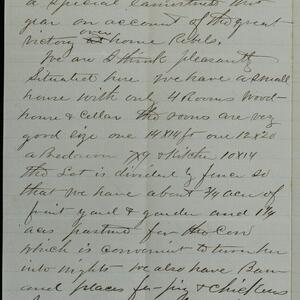 a special earnestness this
year on account of the great
victory over home Rebels.
We are I think pleasantly
Situated here we have a small
house with only 4 Rooms Wood-
house & Cellar the rooms are very
good size one 14x14 ft one 12x20
a Bedroom 7x9 & Kitchen 10x14
the Lot is divided by fence so
that we have about 3/4 acre of
fruit yard & garden and 1 1/4
acres pasture for the Cow
which is convenient to turn her
into nights we also have Barn
and places for pig & chickens